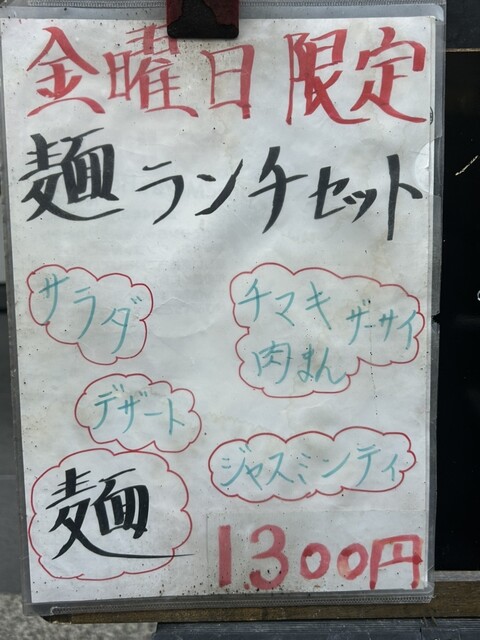 金曜日限定
麺ランチセット
サラダ
チマキ ザーサイ
肉まん
デザート
ジャスミンティ
麺
1300円